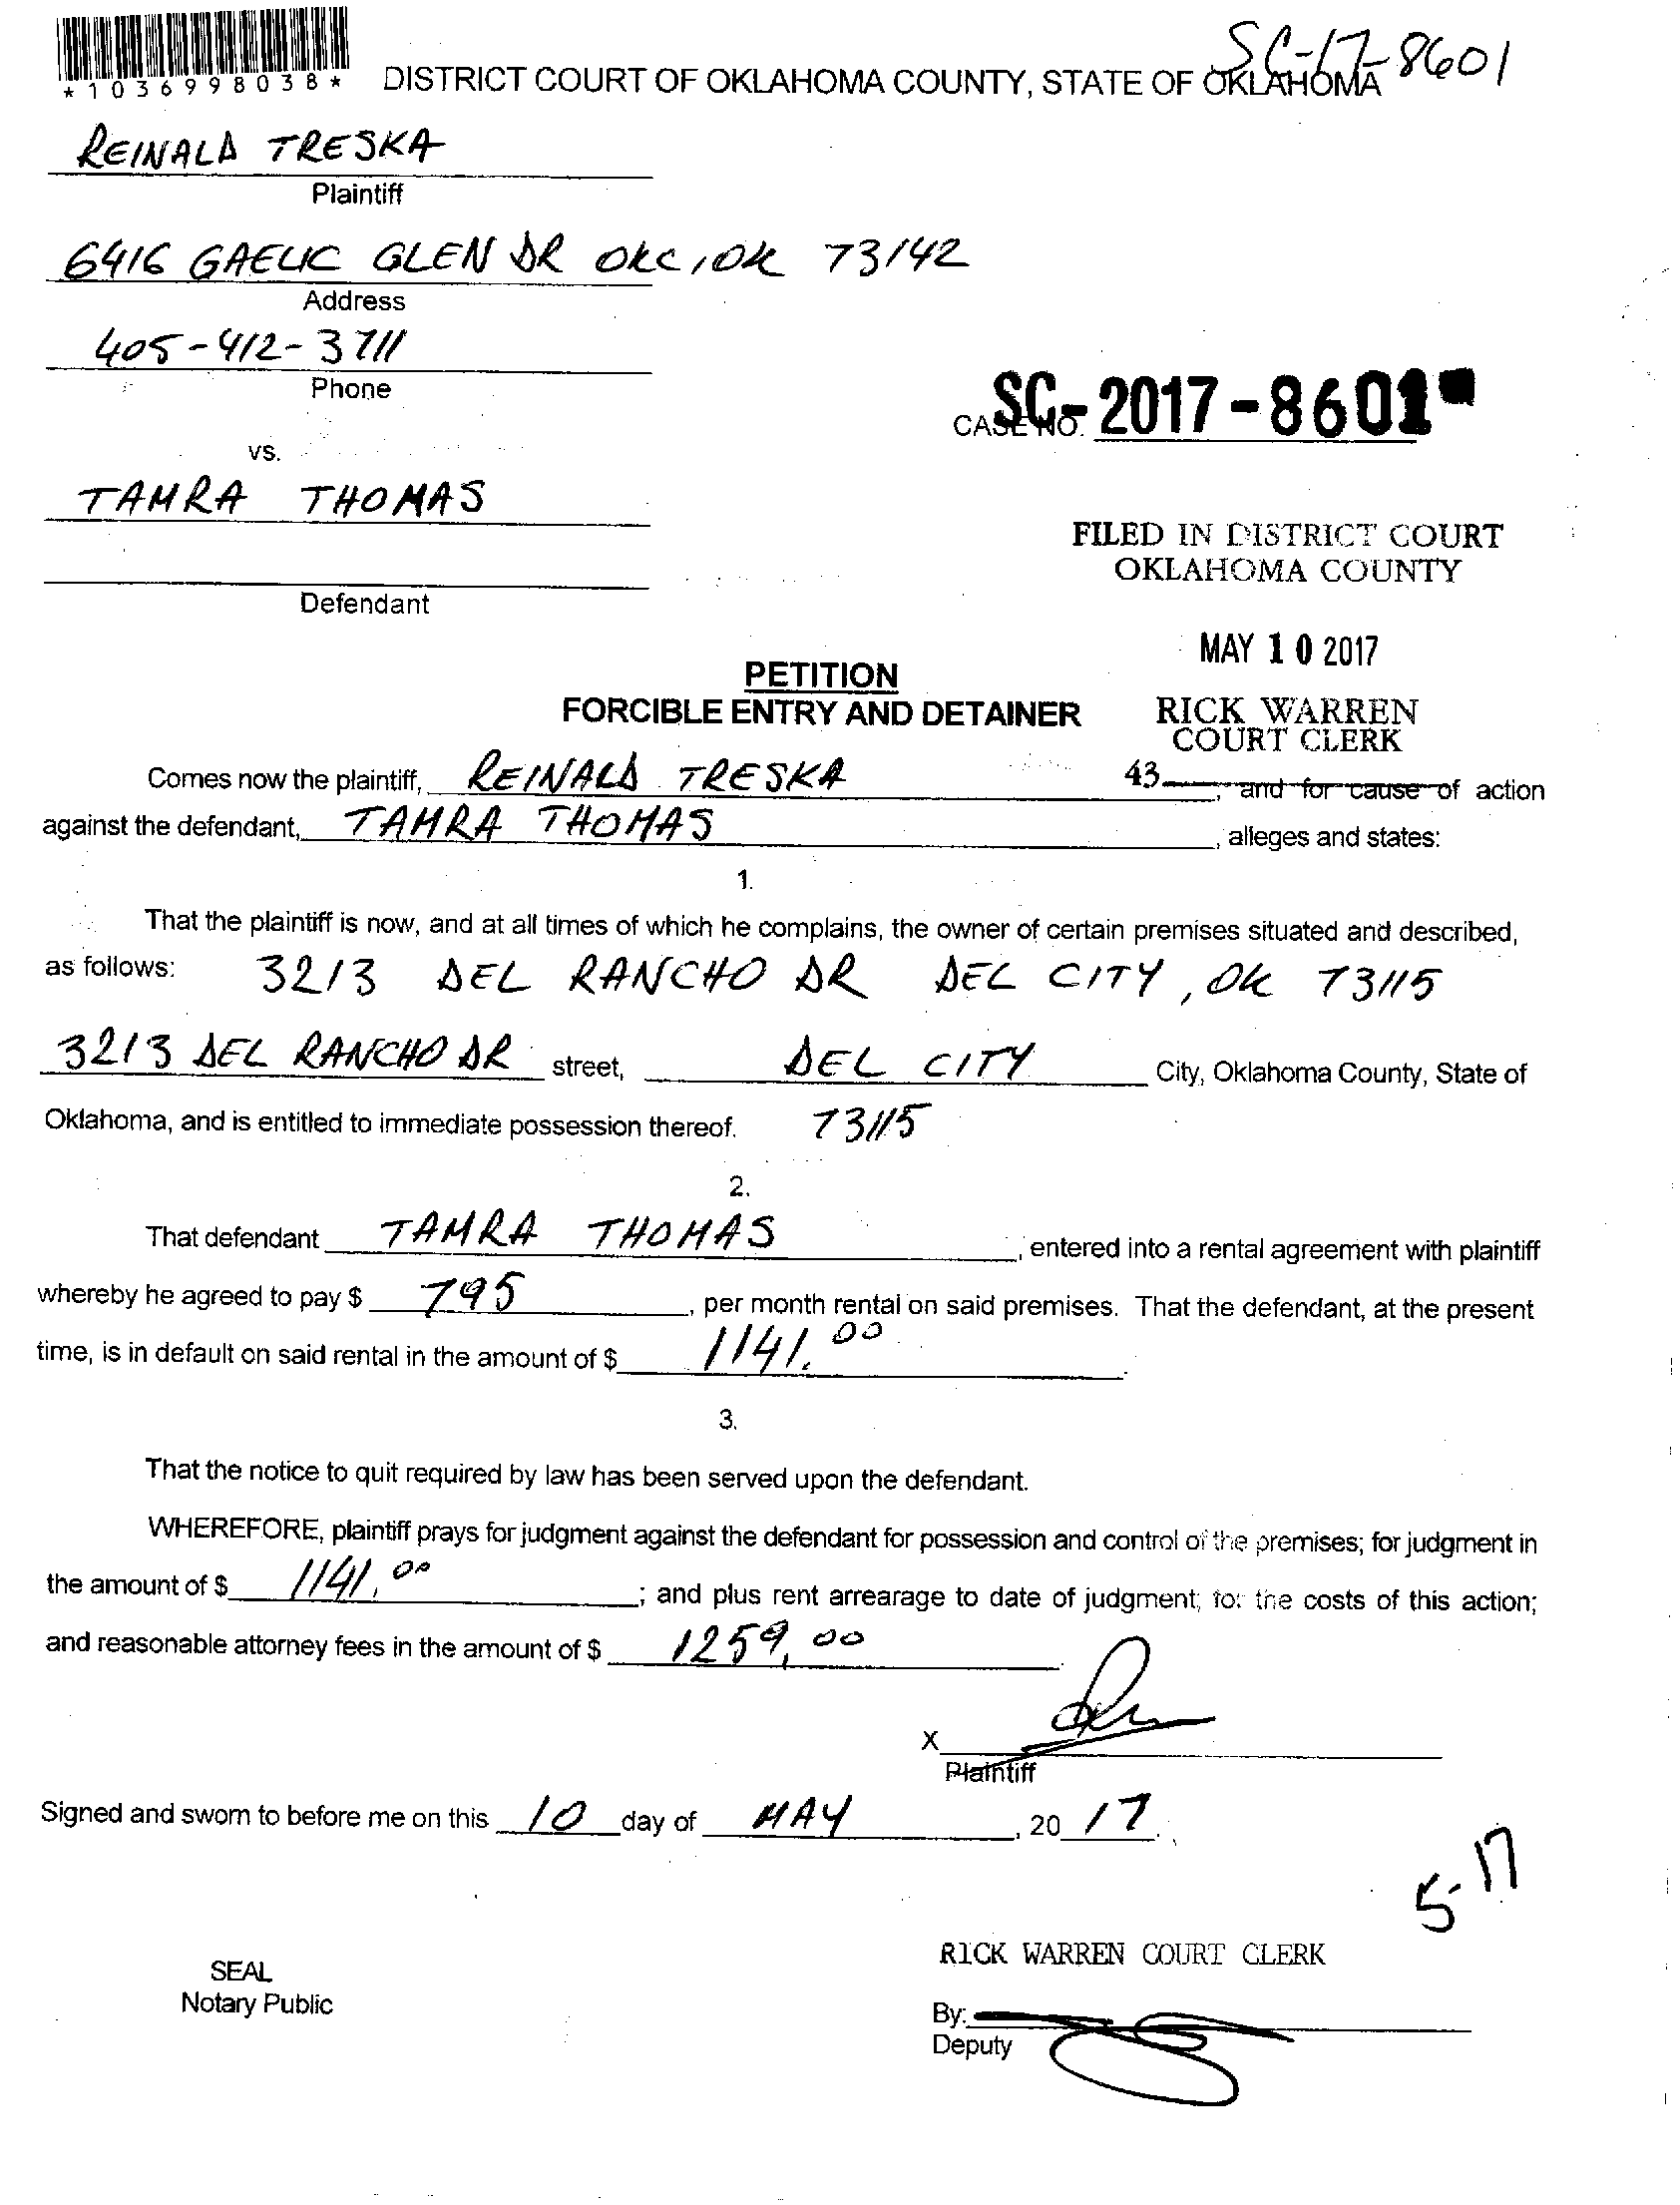 SC-17-8601
*1036998038*
DISTRICT COURT OF OKLAHOMA COUNTY, STATE OF OKLAHOMA
REINALD TRESKA
Plaintiff
6416 GAELIC GLEN DR OKC, OK 73142
Address
405-412-3711
Phone
CASE NO. SC-2017-8601
vs.
TAMRA THOMAS
FILED IN DISTRICT COURT
OKLAHOMA COUNTY
Defendant
MAY 10 2017
PETITION
FORCIBLE ENTRY AND DETAINER
RICK WARREN
COURT CLERK
43
Comes now the plaintiff, REINALD TRESKA, and for cause of action
against the defendant, TAMRA THOMAS, alleges and states:
1.
That the plaintiff is now, and at all times of which he complains, the owner of certain premises situated and described,
as follows: 3213 DEL RANCHO DR DEL CITY, OK 73115
3213 DEL RANCHO DR street, DEL CITY City, Oklahoma County, State of
Oklahoma, and is entitled to immediate possession thereof. 73115
2.
That defendant TAMRA THOMAS, entered into a rental agreement with plaintiff
whereby he agreed to pay $ 795, per month rental on said premises. That the defendant, at the present
time, is in default on said rental in the amount of $ 1141.00.
3.
That the notice to quit required by law has been served upon the defendant.
WHEREFORE, plaintiff prays for judgment against the defendant for possession and control of the premises; for judgment in
the amount of $ 1141.00; and plus rent arrearage to date of judgment; for the costs of this action;
and reasonable attorney fees in the amount of $ 1259.00
X
Plaintiff
Signed and sworn to before me on this 10 day of MAY, 2017.
5-17
RICK WARREN COURT CLERK
SEAL
Notary Public
By:
Deputy